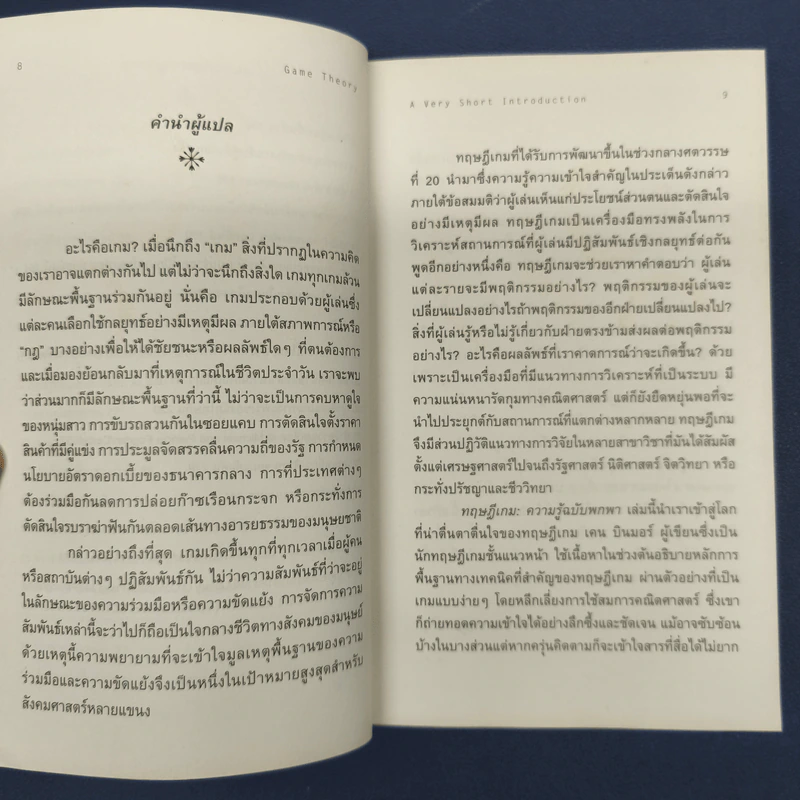 8
Game Theory
คำนำผู้แปล
อะไรคือเกม? เมื่อนึกถึง “เกม” สิ่งที่ปรากฏในความคิด
ของเราอาจแตกต่างกันไป แต่ไม่ว่าจะนึกถึงสิ่งใด เกมทุกเกมล้วน
มีลักษณะพื้นฐานร่วมกันอยู่ นั่นคือ เกมประกอบด้วยผู้เล่นซึ่ง
แต่ละคนเลือกใช้กลยุทธ์อย่างมีเหตุมีผล ภายใต้สภาพการณ์หรือ
“กฎ” บางอย่างเพื่อให้ได้ชัยชนะหรือผลลัพธ์ใดๆ ที่ตนต้องการ
และเมื่อมองย้อนกลับมาที่เหตุการณ์ในชีวิตประจำวัน เราจะพบ
ว่าส่วนมากก็มีลักษณะพื้นฐานที่ว่านี้ ไม่ว่าจะเป็นการคบหาดูใจ
ของหนุ่มสาว การขับรถสวนกันในซอยแคบ การตัดสินใจตั้งราคา
สินค้าที่มีคู่แข่ง การประมูลจัดสรรคลื่นความถี่ของรัฐ การกำหนด
นโยบายอัตราดอกเบี้ยของธนาคารกลาง การที่ประเทศต่างๆ
ต้องร่วมมือกันลดการปล่อยก๊าซเรือนกระจก หรือกระทั่งการ
ตัดสินใจรบราฆ่าฟันกันตลอดเส้นทางอารยธรรมของมนุษยชาติ
กล่าวอย่างถึงที่สุด เกมเกิดขึ้นทุกที่ทุกเวลาเมื่อผู้คน
หรือสถาบันต่างๆ ปฏิสัมพันธ์กัน ไม่ว่าความสัมพันธ์ที่ว่าจะอยู่
ในลักษณะของความร่วมมือหรือความขัดแย้ง การจัดการความ
สัมพันธ์เหล่านี้จะว่าไปก็ถือเป็นใจกลางชีวิตทางสังคมของมนุษย์
ด้วยเหตุนี้ความพยายามที่จะเข้าใจมูลเหตุพื้นฐานของความ
ร่วมมือและความขัดแย้งจึงเป็นหนึ่งในเป้าหมายสูงสุดสำหรับ
สังคมศาสตร์หลายแขนง
A Very Short Introduction
9
ทฤษฎีเกมที่ได้รับการพัฒนาขึ้นในช่วงกลางศตวรรษ
ที่ 20 นำมาซึ่งความรู้ความเข้าใจสำคัญในประเด็นดังกล่าว
ภายใต้ข้อสมมติว่าผู้เล่นเห็นแก่ประโยชน์ส่วนตนและตัดสินใจ
อย่างมีเหตุมีผล ทฤษฎีเกมเป็นเครื่องมือทรงพลังในการ
วิเคราะห์สถานการณ์ที่ผู้เล่นมีปฏิสัมพันธ์เชิงกลยุทธ์ต่อกัน
พูดอีกอย่างหนึ่งคือ ทฤษฎีเกมจะช่วยเราหาคำตอบว่า ผู้เล่น
แต่ละรายจะมีพฤติกรรมอย่างไร? พฤติกรรมของผู้เล่นจะ
เปลี่ยนแปลงอย่างไรถ้าพฤติกรรมของอีกฝ่ายเปลี่ยนแปลงไป?
สิ่งที่ผู้เล่นรู้หรือไม่รู้เกี่ยวกับฝ่ายตรงข้ามส่งผลต่อพฤติกรรม
อย่างไร? อะไรคือผลลัพธ์ที่เราคาดการณ์ว่าจะเกิดขึ้น? ด้วย
เพราะเป็นเครื่องมือที่มีแนวทางการวิเคราะห์ที่เป็นระบบ มี
ความแน่นหนารัดกุมทางคณิตศาสตร์ แต่ก็ยังยืดหยุ่นพอที่จะ
นำไปประยุกต์กับสถานการณ์ที่แตกต่างหลากหลาย ทฤษฎีเกม
จึงมีส่วนปฏิวัติแนวทางการวิจัยในหลายสาขาวิชาที่มันได้สัมผัส
ตั้งแต่เศรษฐศาสตร์ไปจนถึงรัฐศาสตร์ นิติศาสตร์ จิตวิทยา หรือ
กระทั่งปรัชญาและชีววิทยา
ทฤษฎีเกม: ความรู้ฉบับพกพา เล่มนี้นำเราเข้าสู่โลก
ที่น่าตื่นตาตื่นใจของทฤษฎีเกม เคน บินมอร์ ผู้เขียนซึ่งเป็น
นักทฤษฎีเกมชั้นแนวหน้า ใช้เนื้อหาในช่วงต้นอธิบายหลักการ
พื้นฐานทางเทคนิคที่สำคัญของทฤษฎีเกม ผ่านตัวอย่างที่เป็น
เกมแบบง่ายๆ โดยหลีกเลี่ยงการใช้สมการคณิตศาสตร์ ซึ่งเขา
ก็ถ่ายทอดความเข้าใจได้อย่างลึกซึ้งและชัดเจน แม้อาจซับซ้อน
บ้างในบางส่วนแต่หากครุ่นคิดตามก็จะเข้าใจสารที่สื่อได้ไม่ยาก